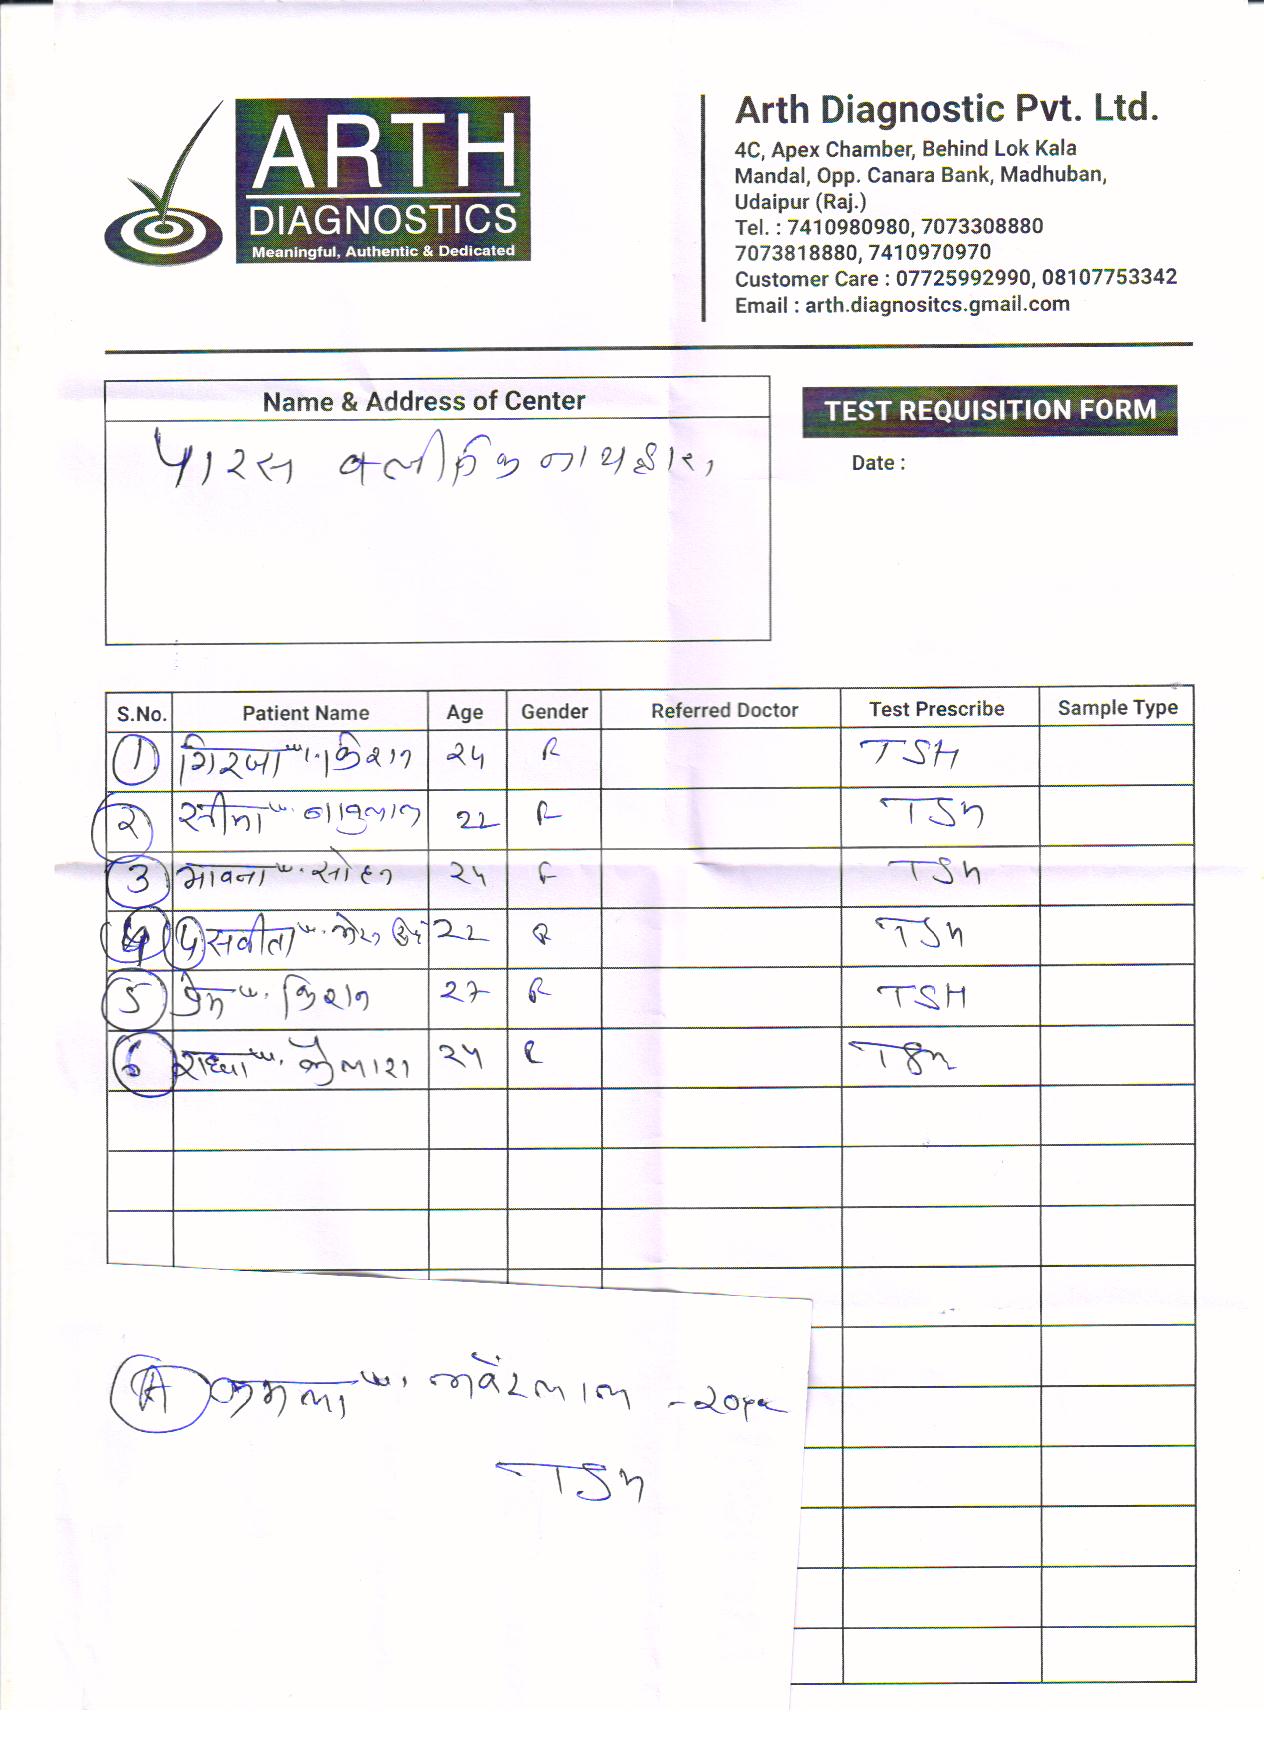 ARTH
DIAGNOSTICS
Meaningful, Authentic & Dedicated
Arth Diagnostic Pvt. Ltd.
4C, Apex Chamber, Behind Lok Kala
Mandal, Opp. Canara Bank, Madhuban,
Udaipur (Raj.)
Tel. : 7410980980, 7073308880
7073818880, 7410970970
Customer Care : 07725992990, 08107753342
Email : arth.diagnositcs.gmail.com
Name & Address of Center
पारस क्लीनिक नाथद्वारा
TEST REQUISITION FORM
Date :
S.No. Patient Name Age Gender Referred Doctor Test Prescribe Sample Type
1 गिरजा w. किशन 24 F TSH
2 सीमा w. बाबुलाल 22 F TSH
3 भावना w. सोहन 24 F TSH
4 सवीता w. 22 F TSH
5 प्रेम w. किशन 27 F TSH
6 राधा w. कैलाश 24 F TSH
A कमला w. भवंरलाल - 20
TSH